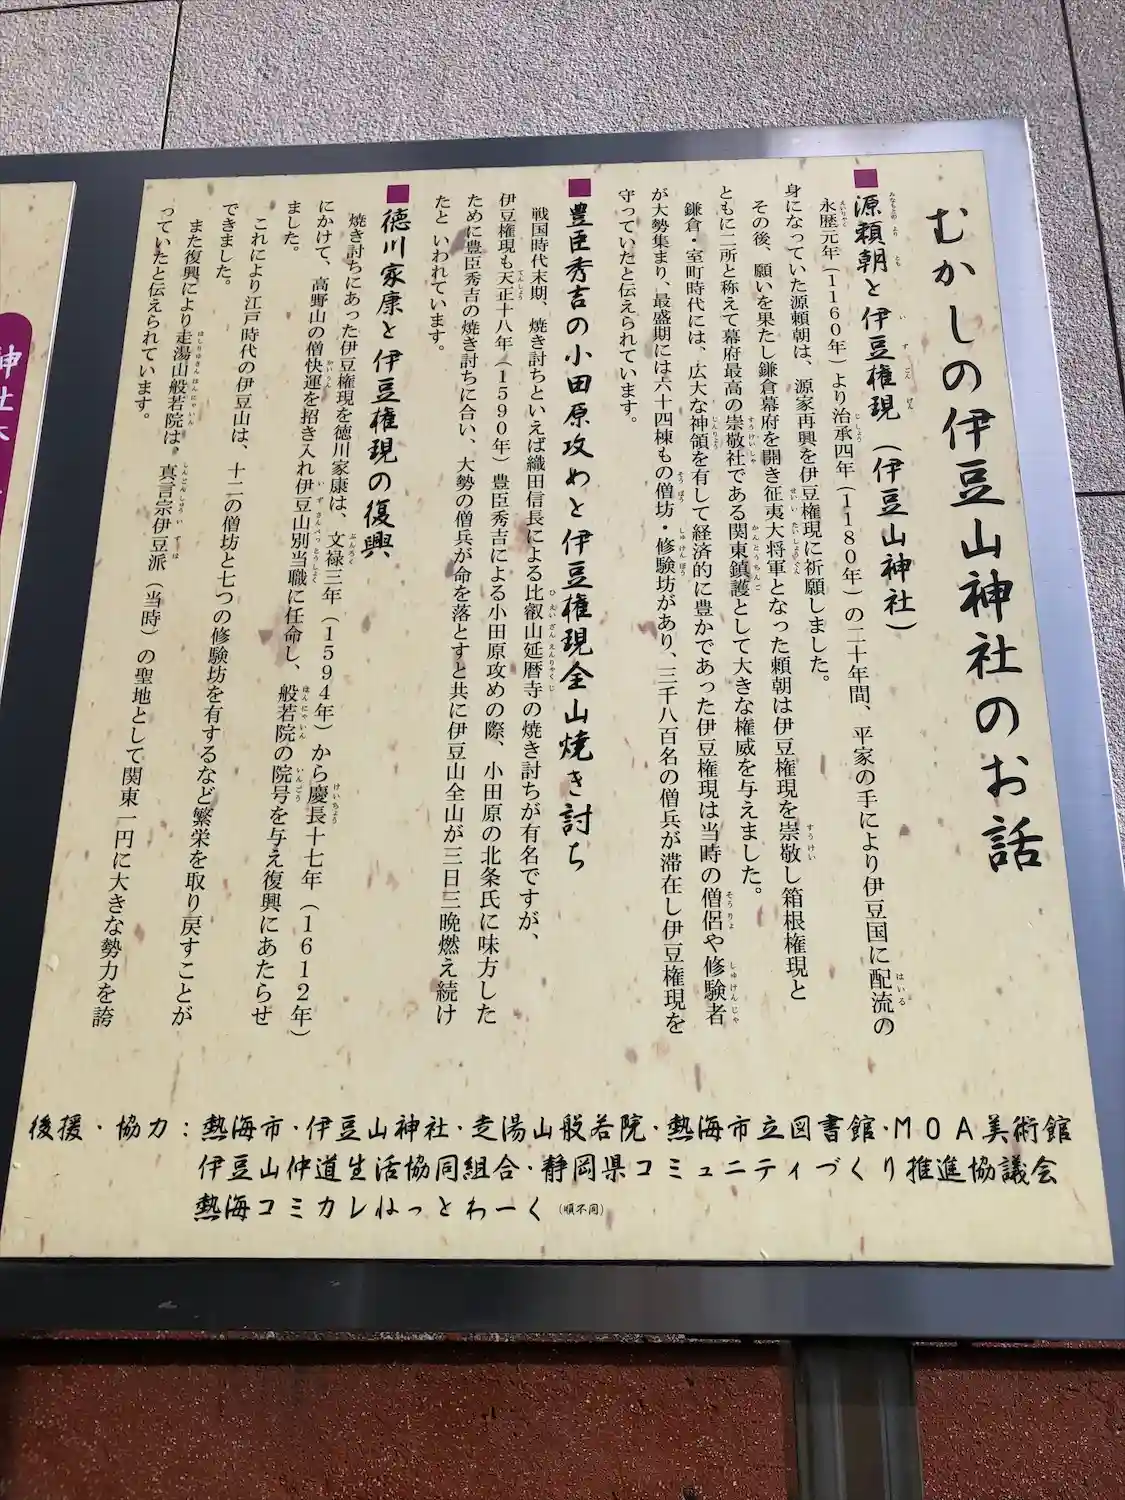 むかしの伊豆山神社のお話
■源頼朝と伊豆権現（伊豆山神社）
永歴元年（1160年）より治承四年（1180年）の二十年間、平家の手により伊豆国に配流の
身になっていた源頼朝は、源家再興を伊豆権現に祈願しました。
その後、願いを果たし鎌倉幕府を開き征夷大将軍となった頼朝は伊豆権現を崇敬し箱根権現と
ともに二所と称えて幕府最高の崇敬社である関東鎮護として大きな権威を与えました。
鎌倉・室町時代には、広大な神領を有して経済的に豊かであった伊豆権現は当時の僧侶や修験者
が大勢集まり、最盛期には六十四棟もの僧坊・修験坊があり、三千八百名の僧兵が滞在し伊豆権現を
守っていたと伝えられています。
■豊臣秀吉の小田原攻めと伊豆権現全山焼き討ち
戦国時代末期、焼き討ちといえば織田信長による比叡山延暦寺の焼き討ちが有名ですが、
伊豆権現も天正十八年（1590年）豊臣秀吉による小田原攻めの際、小田原の北条氏に味方した
ために豊臣秀吉の焼き討ちに合い、大勢の僧兵が命を落とすと共に伊豆山全山が三日三晩燃え続け
たと いわれています。
■徳川家康と伊豆権現の復興
焼き討ちにあった伊豆権現を徳川家康は、文禄三年（1594年）から慶長十七年（1612年）
にかけて、高野山の僧快運を招き入れ伊豆山別当職に任命し、般若院の院号を与え復興にあたらせ
ました。
これにより江戸時代の伊豆山は、十二の僧坊と七つの修験坊を有するなど繁栄を取り戻すことが
できました。
また復興により走湯山般若院は、真言宗伊豆派（当時）の聖地として関東一円に大きな勢力を誇
っていたと伝えられています。
後援・協力：熱海市・伊豆山神社・走湯山般若院・熱海市立図書館・MOA美術館
伊豆山仲道生活協同組合・静岡県コミュニティづくり推進協議会
熱海コミカレねっとわーく（順不同）
神社